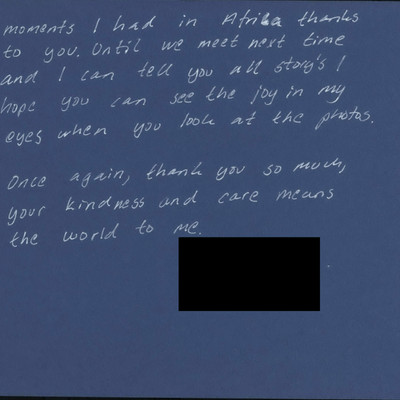 moments I had in Africa thanks
to you. Until we meet next time
and I can tell you all story's I
hope you can see the joy in my
eyes when you look at the photos.
Once again, thank you so much,
your kindness and care means
the world to me.